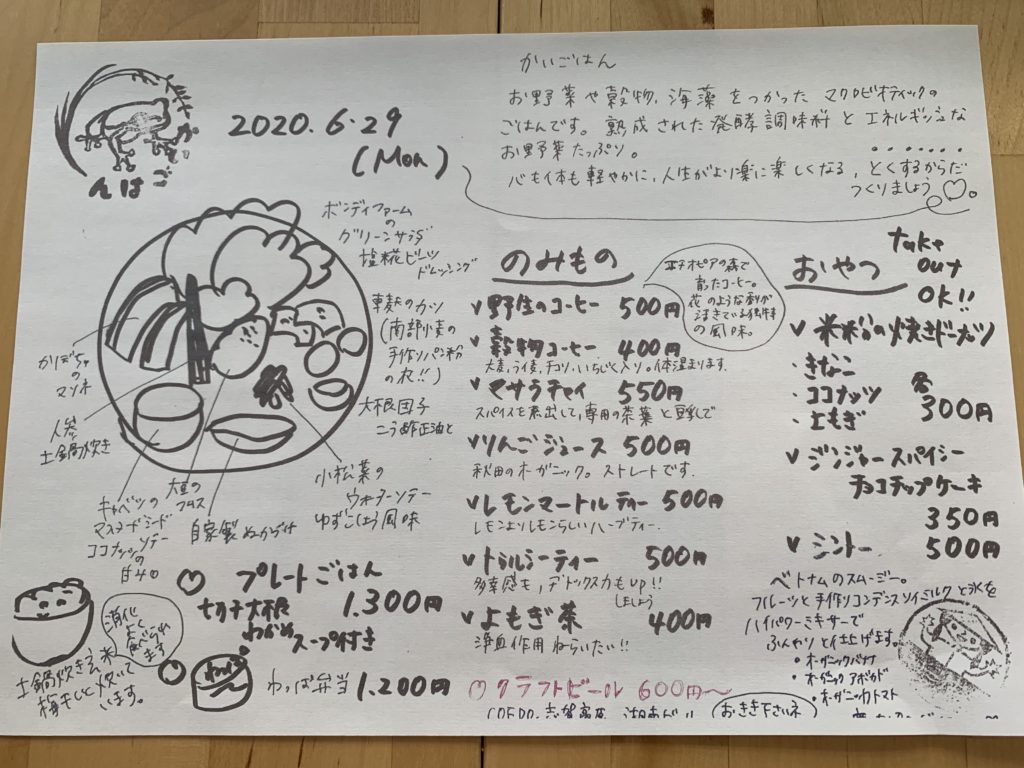 ごはん
2020.6.29
(Mon)
かいごはん
お野菜や穀物、海藻をつかったマクロビオティックの
ごはんです。熟成された発酵調味料とエネルギッシュな
お野菜たっぷり。
心も体も軽やかに、人生がより楽に楽しくなる、とくするからだ
つくりましょう♡。
ボンディファーム
の
グリーンサラダ
塩糀ビーツ
ドレッシング
車麸のカツ
(南部小麦の
手作りパン粉
の衣!!)
大根団子
小松菜の
ウォーターソテー
ゆずこしょう風味
かぼちゃ
の
マリネ
人参
土鍋炊き
キャベツの
マスタードシード
ココナッツソテー
大豆の
自家製ぬか漬け
♡ プレートごはん
切干大根 1.300円
わかめ
スープ付き
消化
よく
食べられ
ます
土鍋炊き玄米
梅干しと炊いて
います。
わっぱ
わっぱ弁当 1.200円
のみもの
エチオピアの森で
育ったコーヒー。
花のような香りが
の風味。
∨野生のコーヒー 500円
∨穀物コーヒー 400円
大麦、ライ麦、チコリ、いちじく入り。体温まります。
∨マサラチャイ 550円
スパイスを煮出して、専用の茶葉と豆乳で
∨りんごジュース 500円
秋田のオーガニック。ストレートです。
∨レモンマートルティー 500円
レモンよりレモンらしいハーブティー。
∨トゥルシーティー 500円
多幸感も、デトックス力もup!!
しましょう
∨よもぎ茶 400円
浄血作用ねらいたい!!
♡クラフトビール 600円〜
COEDO、志賀高原、湖あがり
おきき下さいネ
おやつ
take
out
OK!!
∨米粉の焼きドーナツ
・きなこ
・ココナッツ
・よもぎ
各
300円
∨ジンジャースパイシー
チョコチップケーキ
350円
∨シントー 500円
ベトナムのスムージー。
フルーツと手作りコンデンスソイミルクと氷を
ハイパワーミキサーで
ふんわりと仕上げます。
・オーガニックバナナ
・オーガニックアボカド
・オーガニックトマト